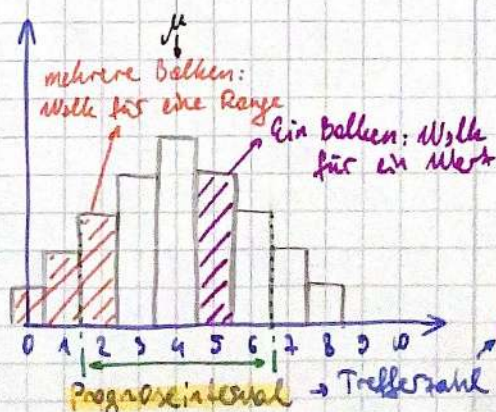 μ
mehrere Balken:
Wslk für eine Range
Ein Balken: Wslk
für ein Wert
0 1 2 3 4 5 6 7 8 9 10
Prognoseintervall → Trefferzahl